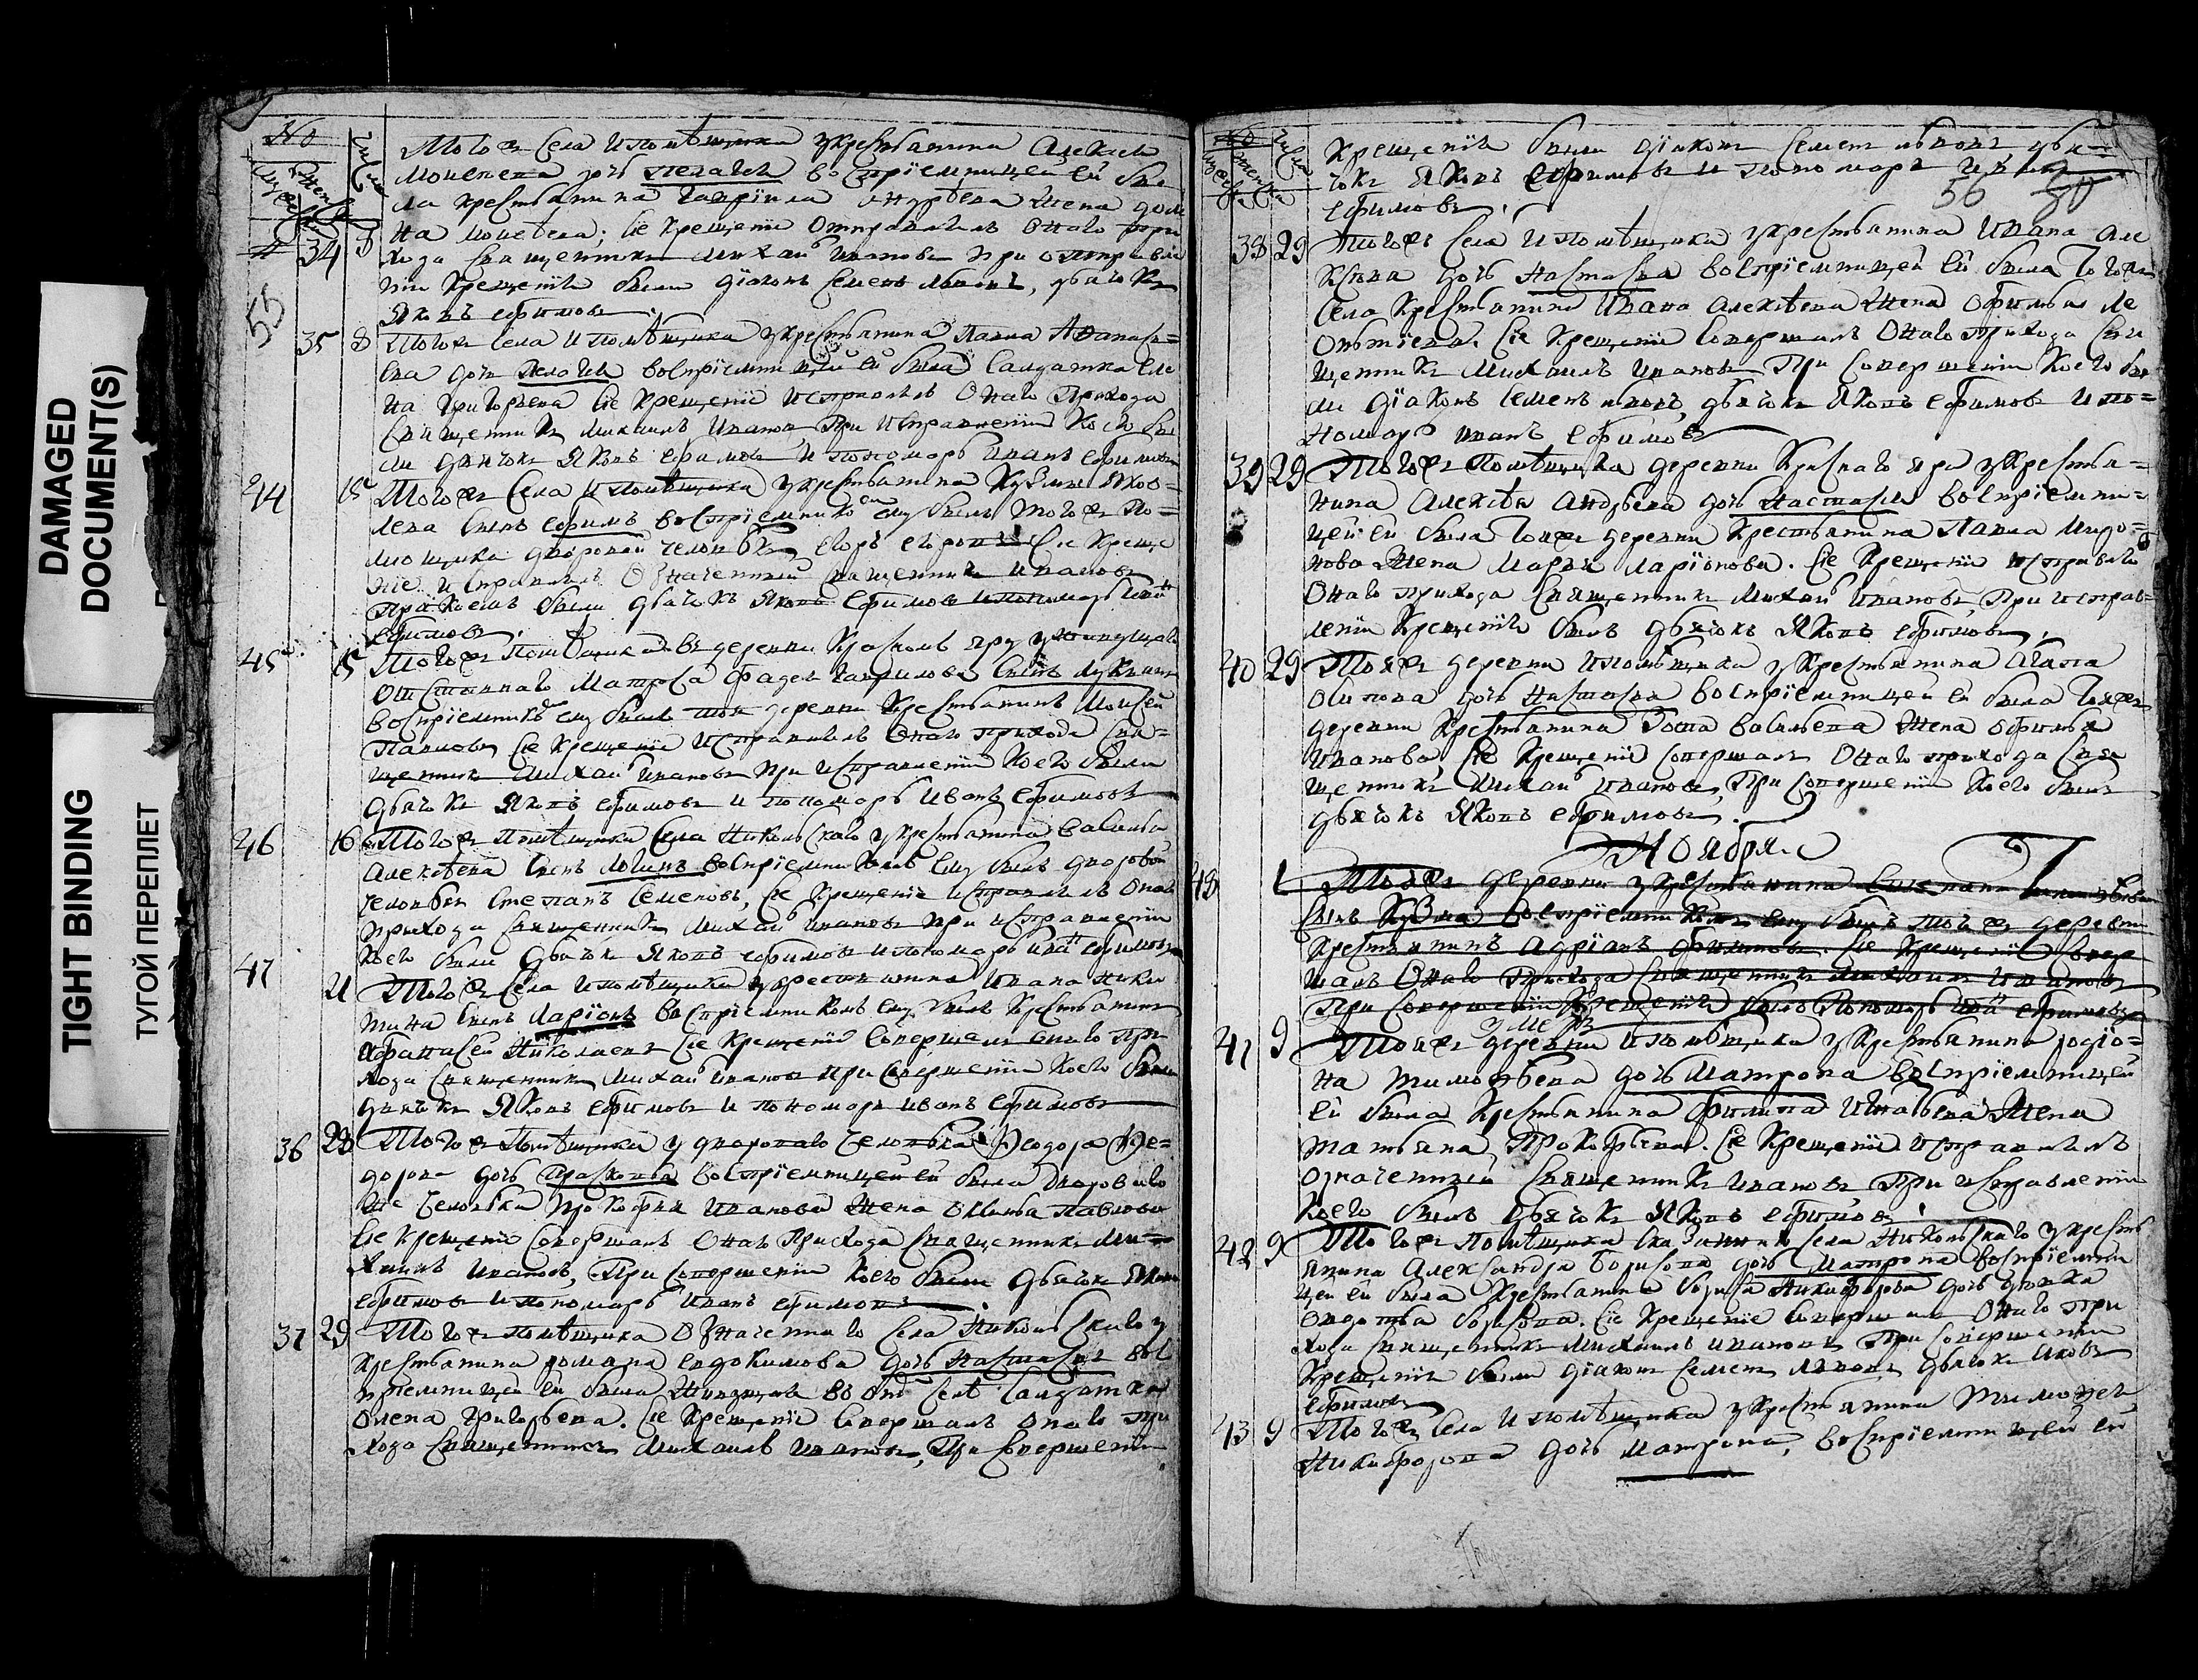 DAMAGED
DOCUMENT(S)
TIGHT BINDING
ТУГОЙ ПЕРЕПЛЕТ
№
число
Того ж села и помѣщика у крестьянина Алексея
Моисеева дочь Пелагея восприемницей ей бы
ла крестьянина Гаврила Андреева жена Дом
на Моисеева; сïе крещенïе отправлялъ онаго прихо
34 8 хода священникъ Михаи Ивановъ при отправле
нïи крещенïя были дïаконъ Семенъ Ивановъ, дьячокъ
55
Яковъ Ефимовъ.
35 8 Того ж села и помѣщика у крестьянина Павла Афанась=
ева дочь Пелагея восприемницей ей была салдатка Еле
на Григорьева сïе крещенïе исправлялъ онаго прихода
священникъ Михаилъ Ивановъ при исправленïи коего бы
ли дьячокъ Яковъ Ефимовъ и пономарь Иванъ Ефимовъ
44 15 Того ж села и помѣщика у крестьянина Кузмы Яков=
лева сынъ Ефимъ восприемникомъ ему былъ того ж по=
мещика дворовой человѣкъ Егоръ Егоровъ сïе креще
нïе исправлялъ означенный священникъ Ивановъ
при коемъ были дьячокъ Яковъ Ефимовъ и пономарь Иванъ
Ефимовъ.
45 15 Того ж помѣщика въ деревни Красномъ яру у живущаго
отставнаго матроса Фадея Гаврилова сынъ Лукïянъ
восприемникомъ ему былъ тоя деревни крестьянинъ Моисей
Павловъ, сïе крещенïе исправлялъ онаго прихода свя=
щенникъ Михаи Ивановъ при исправленïи коего были
дьячокъ Яковъ Ефимовъ и пономарь Иванъ Ефимовъ
46 16 Того ж помѣщика села Никольскаго у крестьянина Василья
Алексѣева сынъ Логинъ восприемникомъ ему былъ дворовой
человѣкъ Степанъ Семеновъ, сïе крещенïе исправлялъ онаго
прихода священникъ Михаи Ивановъ при исправленïи
коего были дьячокъ Яковъ Ефимовъ и пономарь Иванъ Ефимовъ
47 21 Того ж села и помѣщика у крестьянина Ивана Ники
тина сынъ Ларïонъ восприемникомъ ему былъ крестьянинъ
Афанасей Николаевъ сïе крещенïе совершалъ онаго при
хода священникъ Михаи Ивановъ при совершенïи коего были
дьячокъ Яковъ Ефимовъ и пономарь Иванъ Ефимовъ
36 28 Того ж помѣщика у двороваго человѣка Федора Фе=
дорова дочь Прасковья восприемницей ей была двороваго
же человѣка Прокофья Иванова жена Акулина Павлова
сïе крещенïе совершалъ онаго прихода священникъ Ми=
хаилъ Ивановъ, при совершенïи коего были дьячокъ Яковъ
Ефимовъ и пономарь Иванъ Ефимовъ
37 29 Того ж помѣщика означеннаго села Никольскаго у
крестьянина Романа Евдокимова дочь Настасья вос
приемницей ей была живущая во ономъ селѣ салдатка
Олена Григорьева. сïе крещенïе совершалъ онаго при
хода священникъ Михаилъ Ивановъ, при совершенïи
№
число
крещенïя были дïаконъ Семенъ Ивановъ дья=
чокъ Яковъ Ефимовъ и пономарь Иванъ
56 80
Ефимовъ.
38 29 Того ж села и помѣщика у крестьянина Ивана Але
ксѣева дочь Настасья восприемницей ей была того ж
села крестьянина Ивана Алексѣева жена Офимья Ле
онтïева. сïе крещенïе совершалъ онаго прихода свя
щенникъ Михаилъ Ивановъ при совершенïи коего бы
ли дïаконъ Семенъ Ивановъ, дьячокъ Яковъ Ефимовъ и по=
номарь Иванъ Ефимовъ
39 29 Того ж помѣщика деревни Краснаго яру у крестья=
нина Алексѣя Андрѣева дочь Настасья восприемни=
цей ей была тоя ж деревни крестьянина Павла
жена Марья Ларïонова. сïе крещенïе исправлялъ
онаго прихода священникъ Михаи Ивановъ, при исправ=
ленïи крещенïя былъ дьячокъ Яковъ Ефимовъ.
40 29 Тоя ж деревни и помѣщика у крестьянина
Осипова дочь Настасья восприемницей ей была тоя ж
деревни крестьянина Васильева жена Офимья
Иванова сïе крещенïе совершалъ онаго прихода свя
щенникъ Михаи Ивановъ, при совершенïи коего былъ
дьячокъ Яковъ Ефимовъ.
Ноября.
48 1 Тоя ж деревни у крестьянина
сынъ Кузма восприемникомъ ему былъ той ж деревни
крестьянинъ Адрïанъ Филиповъ. сïе крещенïе совер
шалъ онаго прихода священникъ Михаилъ Ивановъ
при совершенïи крещенïя былъ пономарь Иванъ Ефимовъ
41 9 Тоя ж деревни и помѣщика у крестьянина Родïо=
на Тимофѣева дочь Матрона восприемницей
ей была крестьянина Филипа Игнатьева жена
Татьяна Прокофьева. сïе крещенïе исправлялъ
означенный священникъ Ивановъ при исправленïи
коего былъ дьячокъ Яковъ Ефимовъ.
42 9 Того ж помѣщика села Никольскаго у кресть
янина Александра Борисова дочь Матрона восприемни
цей ей была крестьянина Бориса Никифорова дочь девка
Авдотья Борисова. сïе крещенïе совершалъ онаго при
хода священникъ Михаилъ Ивановъ при совершенïи
крещенïя были дïаконъ Семенъ Ивановъ дьячокъ Яковъ
Ефимовъ
43 9 Того ж села и помѣщика у крестьянина Тимофея
Никифорова дочь Матрона, восприемницей ей